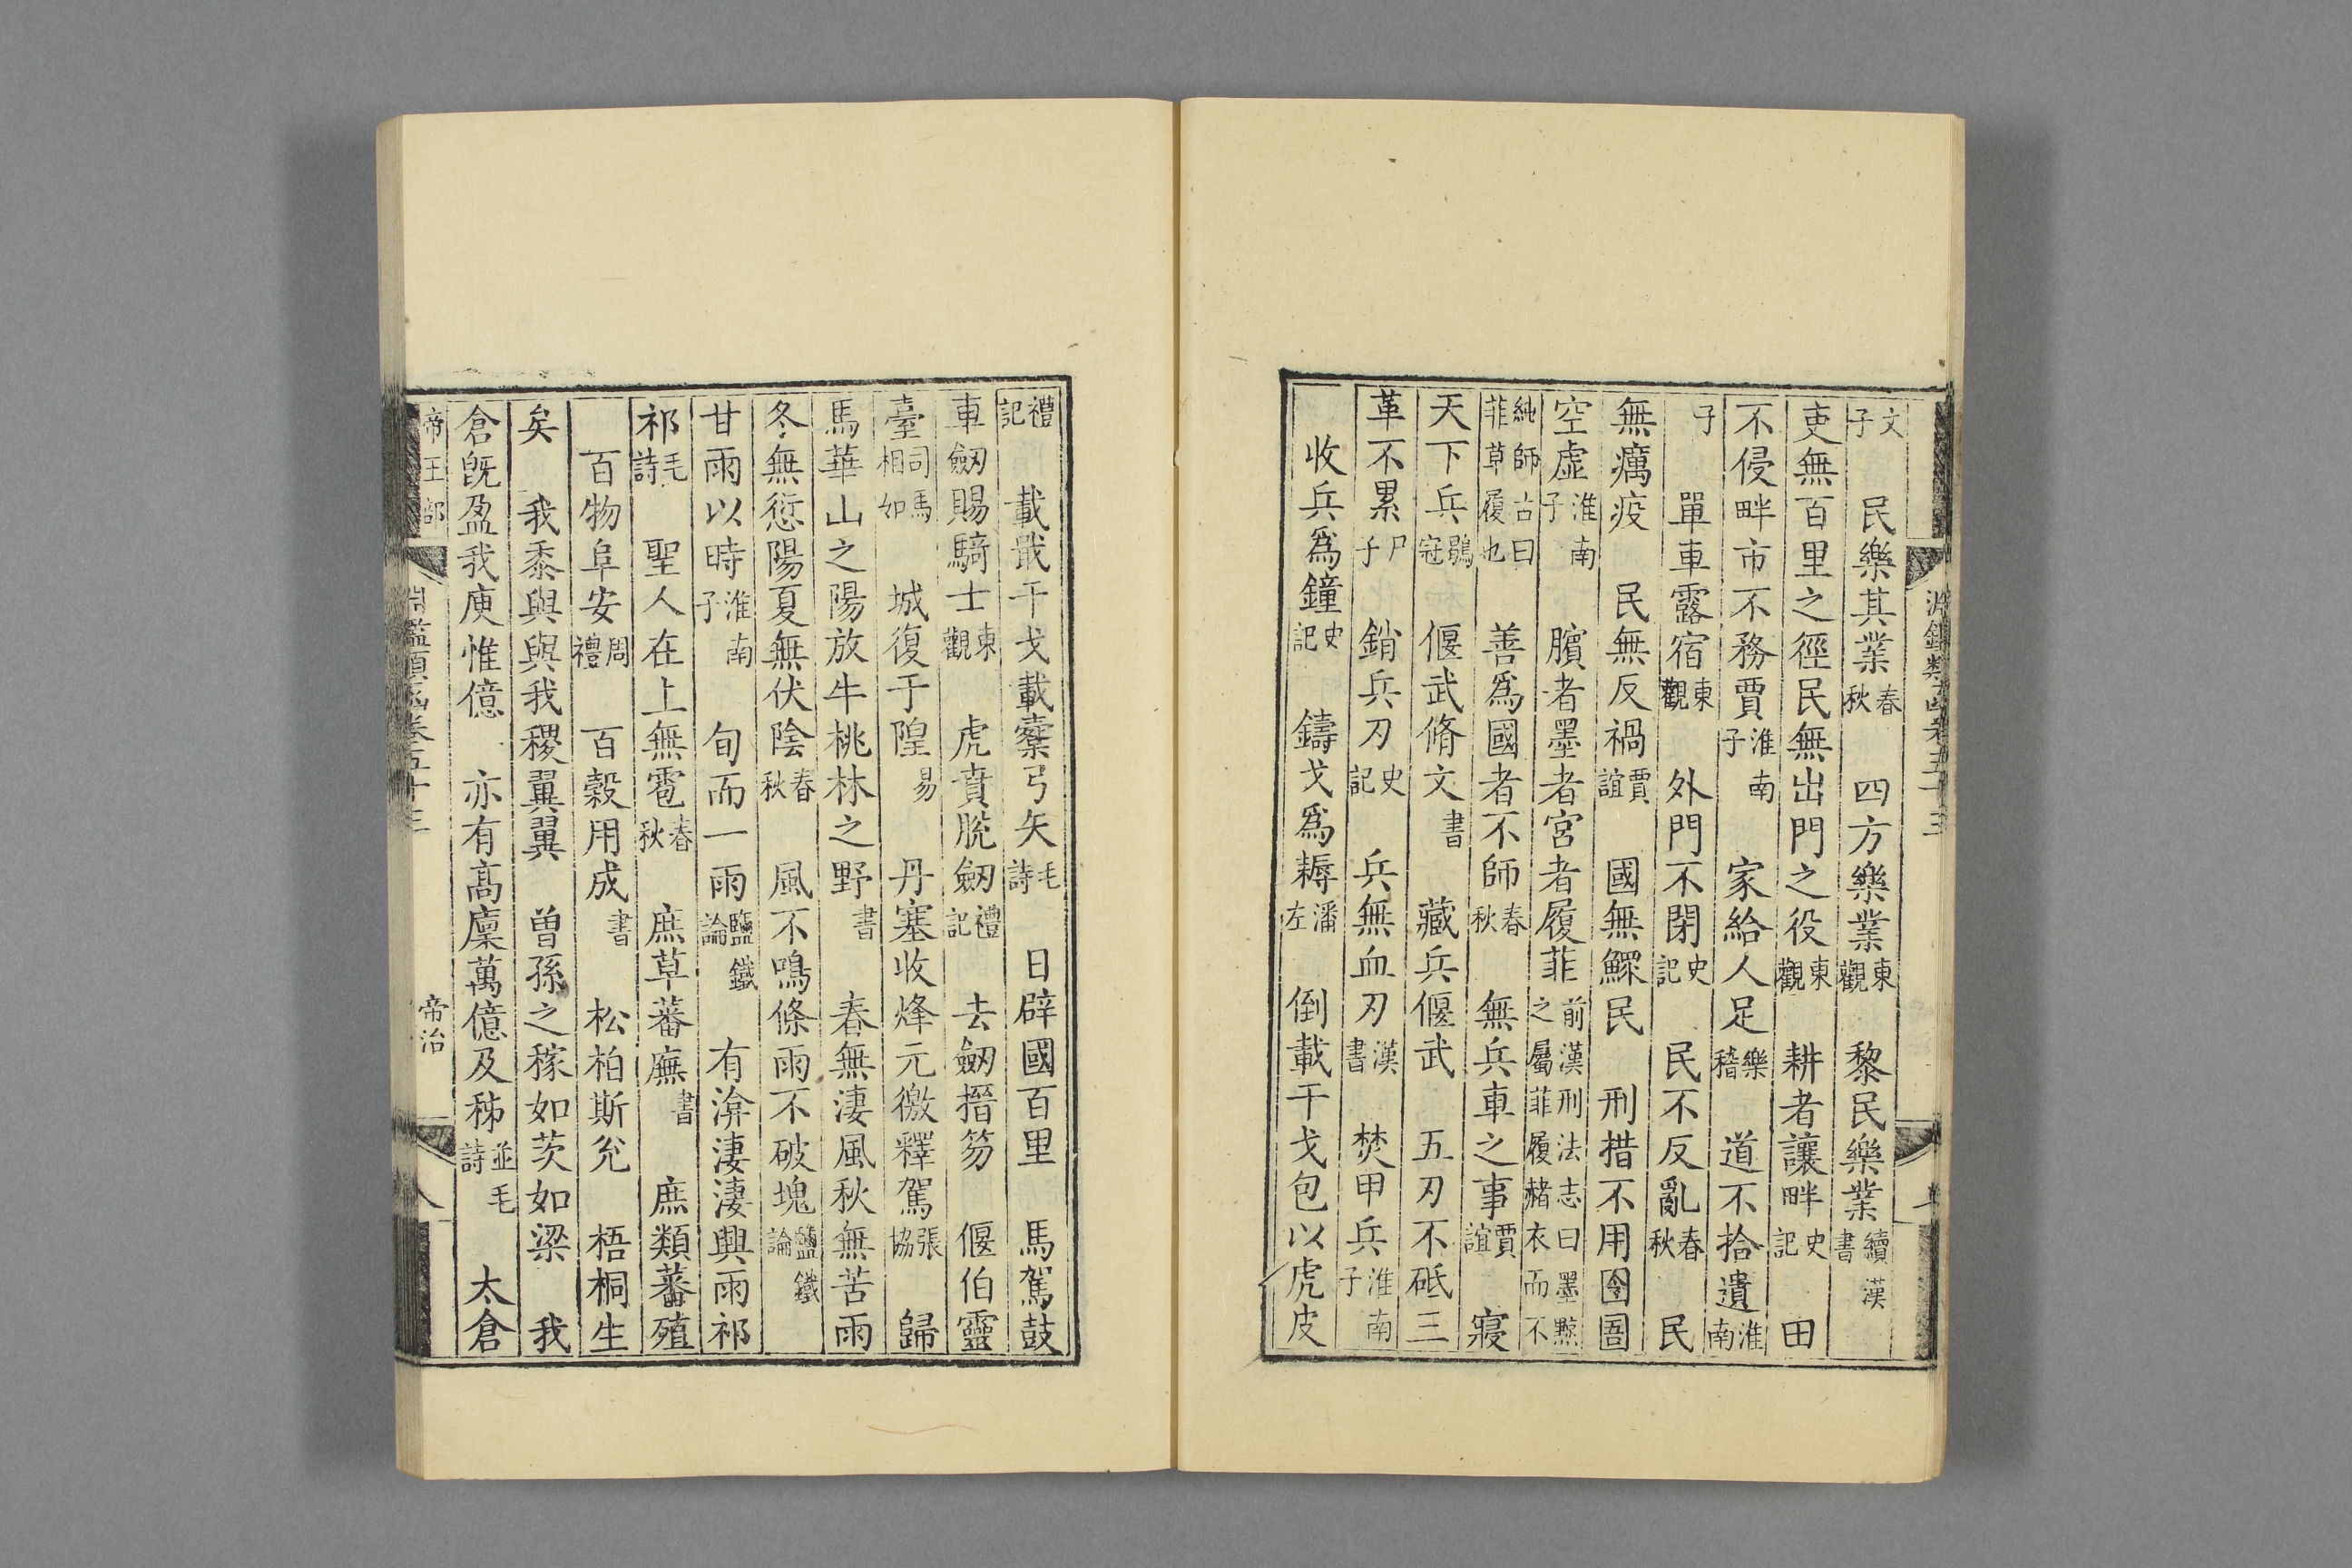 文子　民樂其業春秋　四方樂業東觀　黎民樂業續漢書
吏無百里之徑民無出門之役東觀　耕者讓畔史記　田
不侵畔市不務賈淮南子　家給人足樂稽　道不拾遺淮南
子　單車露宿東觀　外門不閉史記　民不反亂春秋　民
無癘疫　民無反禍賈誼　國無鰥民　刑措不用囹圄
空虛淮南子　臏者墨者宮者履菲前漢刑法志曰墨黥之屬菲履赭衣而不
純師古曰菲草履也　善爲國者不師春秋　無兵車之事賈誼　寢
天下兵鶡冠　偃武脩文書　藏兵偃武　五刃不砥三
革不累尸子　銷兵刃史記　兵無血刃漢書　焚甲兵淮南子
收兵爲鐘史記　鑄戈爲耨潘左　倒載干戈包以虎皮
禮記　載戢干戈載櫜弓矢毛詩　日辟國百里　馬駕鼓
車劒賜騎士東觀　虎賁脫劒禮記　去劒搢笏　偃伯靈
臺司馬相如　城復于隍易　丹塞收烽元徼釋駕張協　歸
馬華山之陽放牛桃林之野書　春無淒風秋無苦雨
冬無愆陽夏無伏陰春秋　風不鳴條雨不破塊鹽鐵論
甘雨以時淮南子　旬而一雨鹽鐵論　有渰淒淒興雨祁
祁毛詩　聖人在上無雹春秋　庶草蕃廡書　庶類蕃殖
百物阜安周禮　百穀用成書　松柏斯兊　梧桐生
矣　我黍與與我稷翼翼　曾孫之稼如茨如梁　我
倉旣盈我庾惟億　亦有高廩萬億及秭並毛詩　太倉
帝王部　淵鑑類函卷五十三　帝治　八